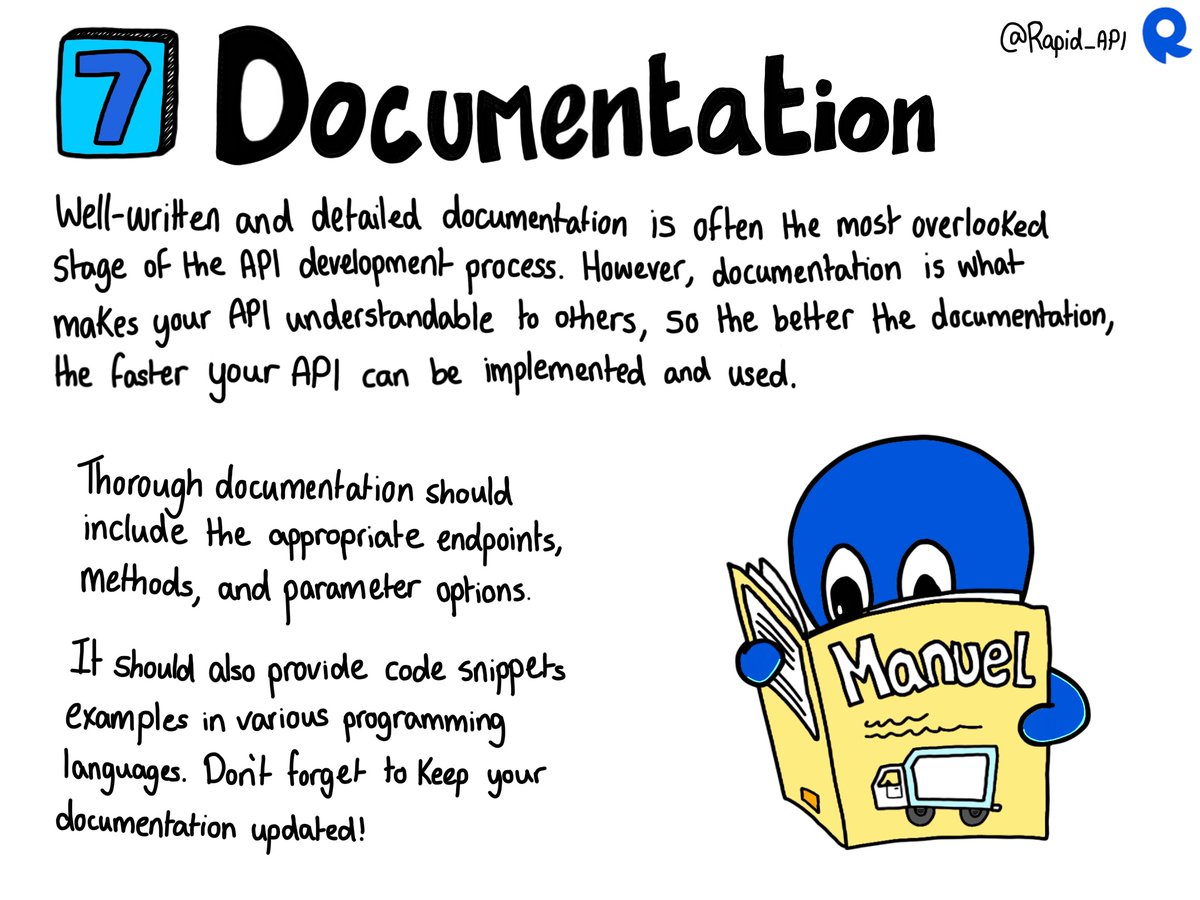 @Rapid_API
7 Documentation
Well-written and detailed documentation is often the most overlooked
stage of the API development process. However, documentation is what
makes your API understandable to others, so the better the documentation,
the faster your API can be implemented and used.
Thorough documentation should
include the appropriate endpoints,
methods, and parameter options.
It should also provide code snippets
examples in various programming
languages. Don't forget to keep your
documentation updated!
Manuel